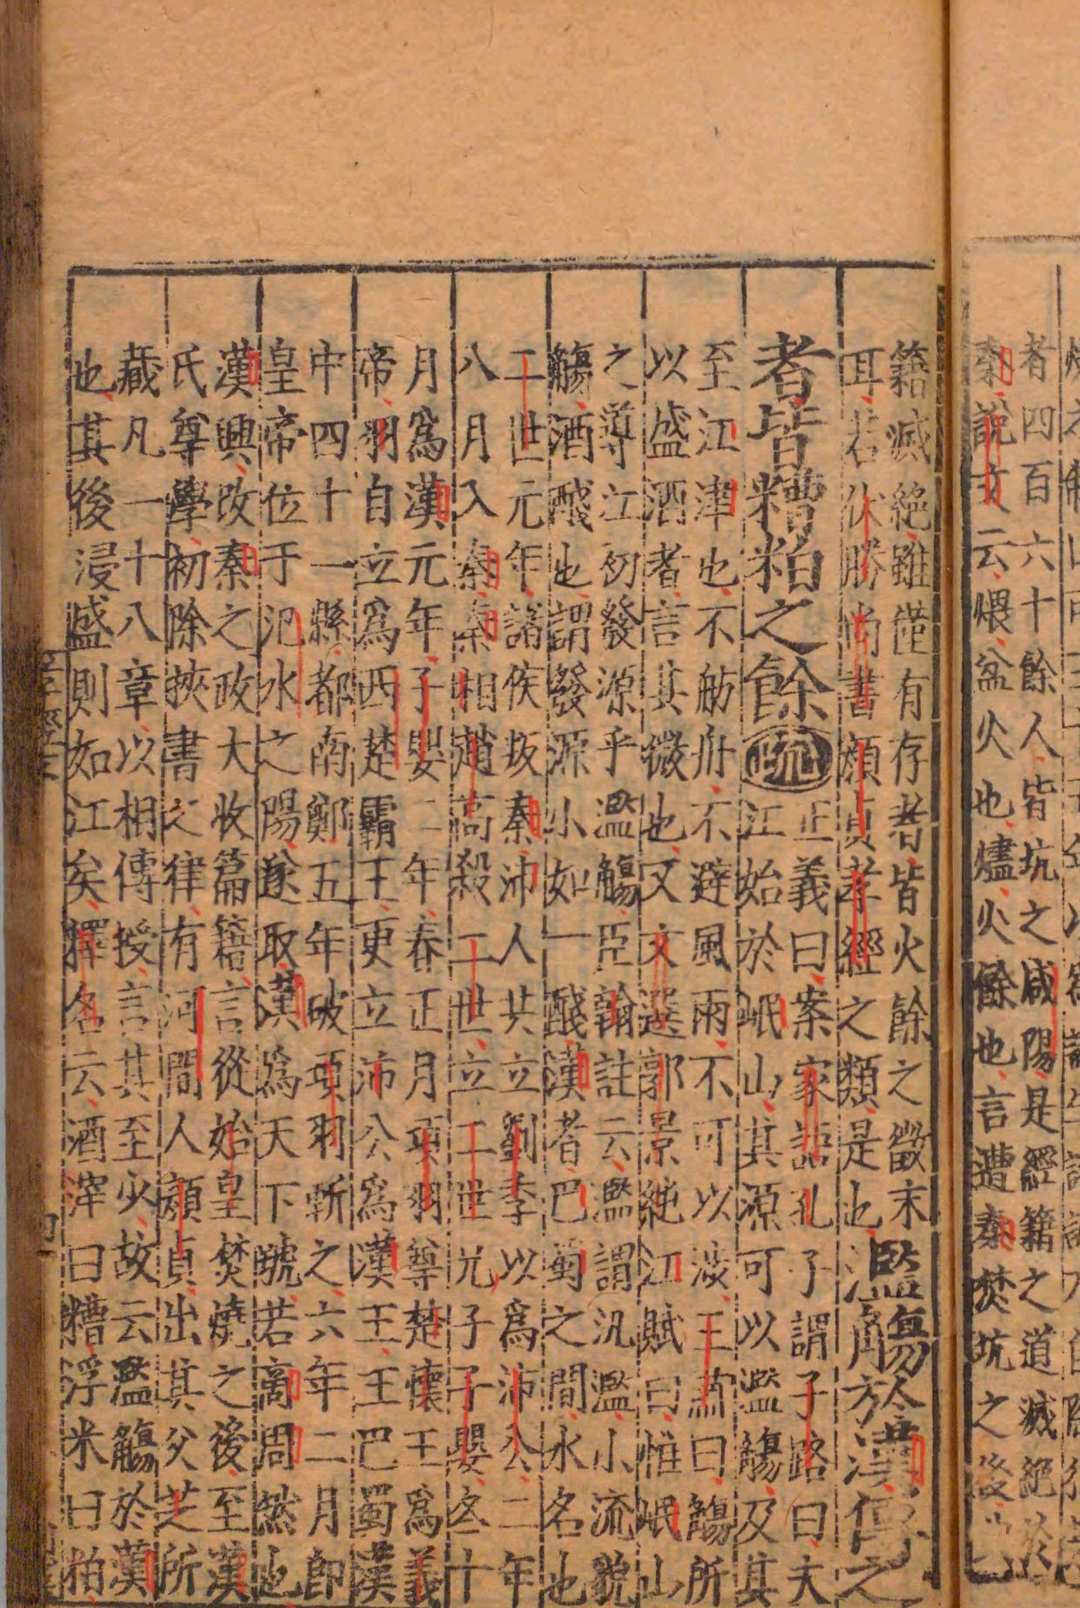 者四百六十餘人皆坑之咸陽是經籍之道滅絕於
秦說文云煨盆火也燼火餘也言遭秦焚坑之後
籍滅絕雖僅有存者皆火餘之微末
耳若伏勝尚書顏貞孝經之類是也
濫觴於漢傳之
者皆糟粕之餘疏
正義曰案家語孔子謂子路曰夫
江始於岷山其源可以濫觴及其
至江津也不舫舟不避風雨不可以涉王肅曰觴所
以盛酒者言其微也又文選郭景純江賦曰惟岷山
之導江初發源乎濫觴臣翰註云濫謂汎濫小流貌
觴酒醆也謂發源小如一醆漢者巴蜀之間水名也
二世元年諸侯叛秦沛人共立劉季以為沛公二年
八月入秦秦相趙高殺二世立二世兄子子嬰冬十
月爲漢元年子嬰二年春正月項羽尊楚懷王爲義
帝羽自立爲西楚霸王更立沛公爲漢王王巴蜀漢
中四十一縣都南鄭五年破項羽斬之六年二月即
皇帝位于氾水之陽遂取漢爲天下號若商周然也
漢興改秦之政大收篇籍言從始皇焚燒之後至漢
氏尊學初除挾書之律有河間人顏貞出其父芝所
藏凡一十八章以相傳授言其至少故云濫觴於漢
也其後浸盛則如江矣釋名云酒滓曰糟浮米曰粕